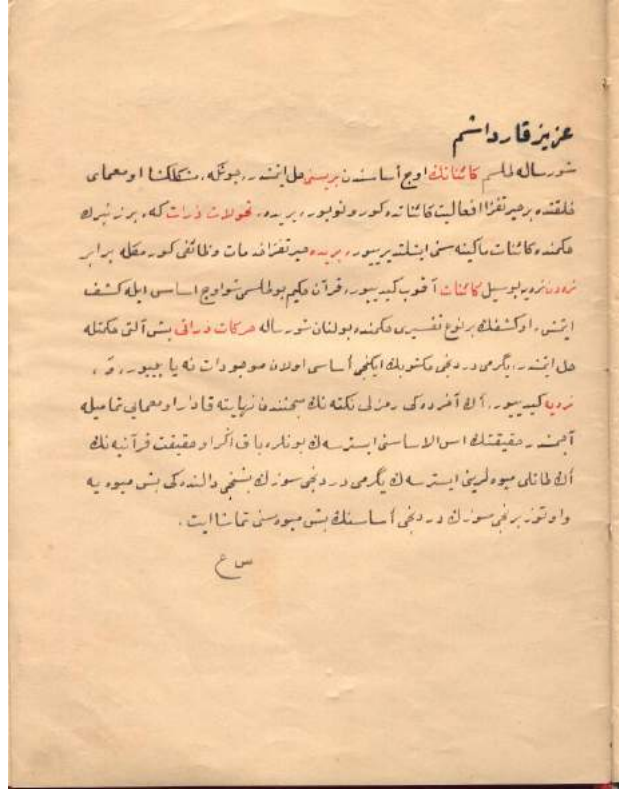 عزیز قارداشم
شو رساله طلسم كائناتك اوچ أساسندن بریسنی حل ایتمشدر، چونكه، مشكلكشا و معمای
خلقتده بر حیرتفزا فعالیت كائناتده كورونویور، بریده، تحولات ذرات كه، بر زنبرك
حكمنده كائنات ماكینه سنی ایشلتدیرییور، بریده حیرتفزا خدمات وظائفی كورمكله برابر
نره دن نره یه بو سیل كائنات آقوب كیدییور، قرآن حكیم بو طلسمی شو اوچ اساس ایله كشف
ایتمش، او كشفك بر نوع تفسیری حكمنده بولنان شو رساله حركات ذراتی بش آلتی حكمتله
حل ایتمشدر، یگرمی دردنجی مكتوبك ایكنجی أساسی اولان موجودات نه یاپییور، و،
نره یه كیدییور، أك آخرده كی رمزلی نكته نك مبحثندن نهایته قادار او معمایی تمامیله
آچمشدر حقیقتك اس الاساسنی ایسترسه ك بونلره باق أكر او حقیقت قرآنیه نك
أك طاتلی میوه لرینی ایسترسه ك یگرمی دردنجی سوزك بشنجی دالنده كی بش میوه یه
و اوتوز برنجی سوزك دردنجی أساسنك بش میوه سنی تماشا ایت.
س ع